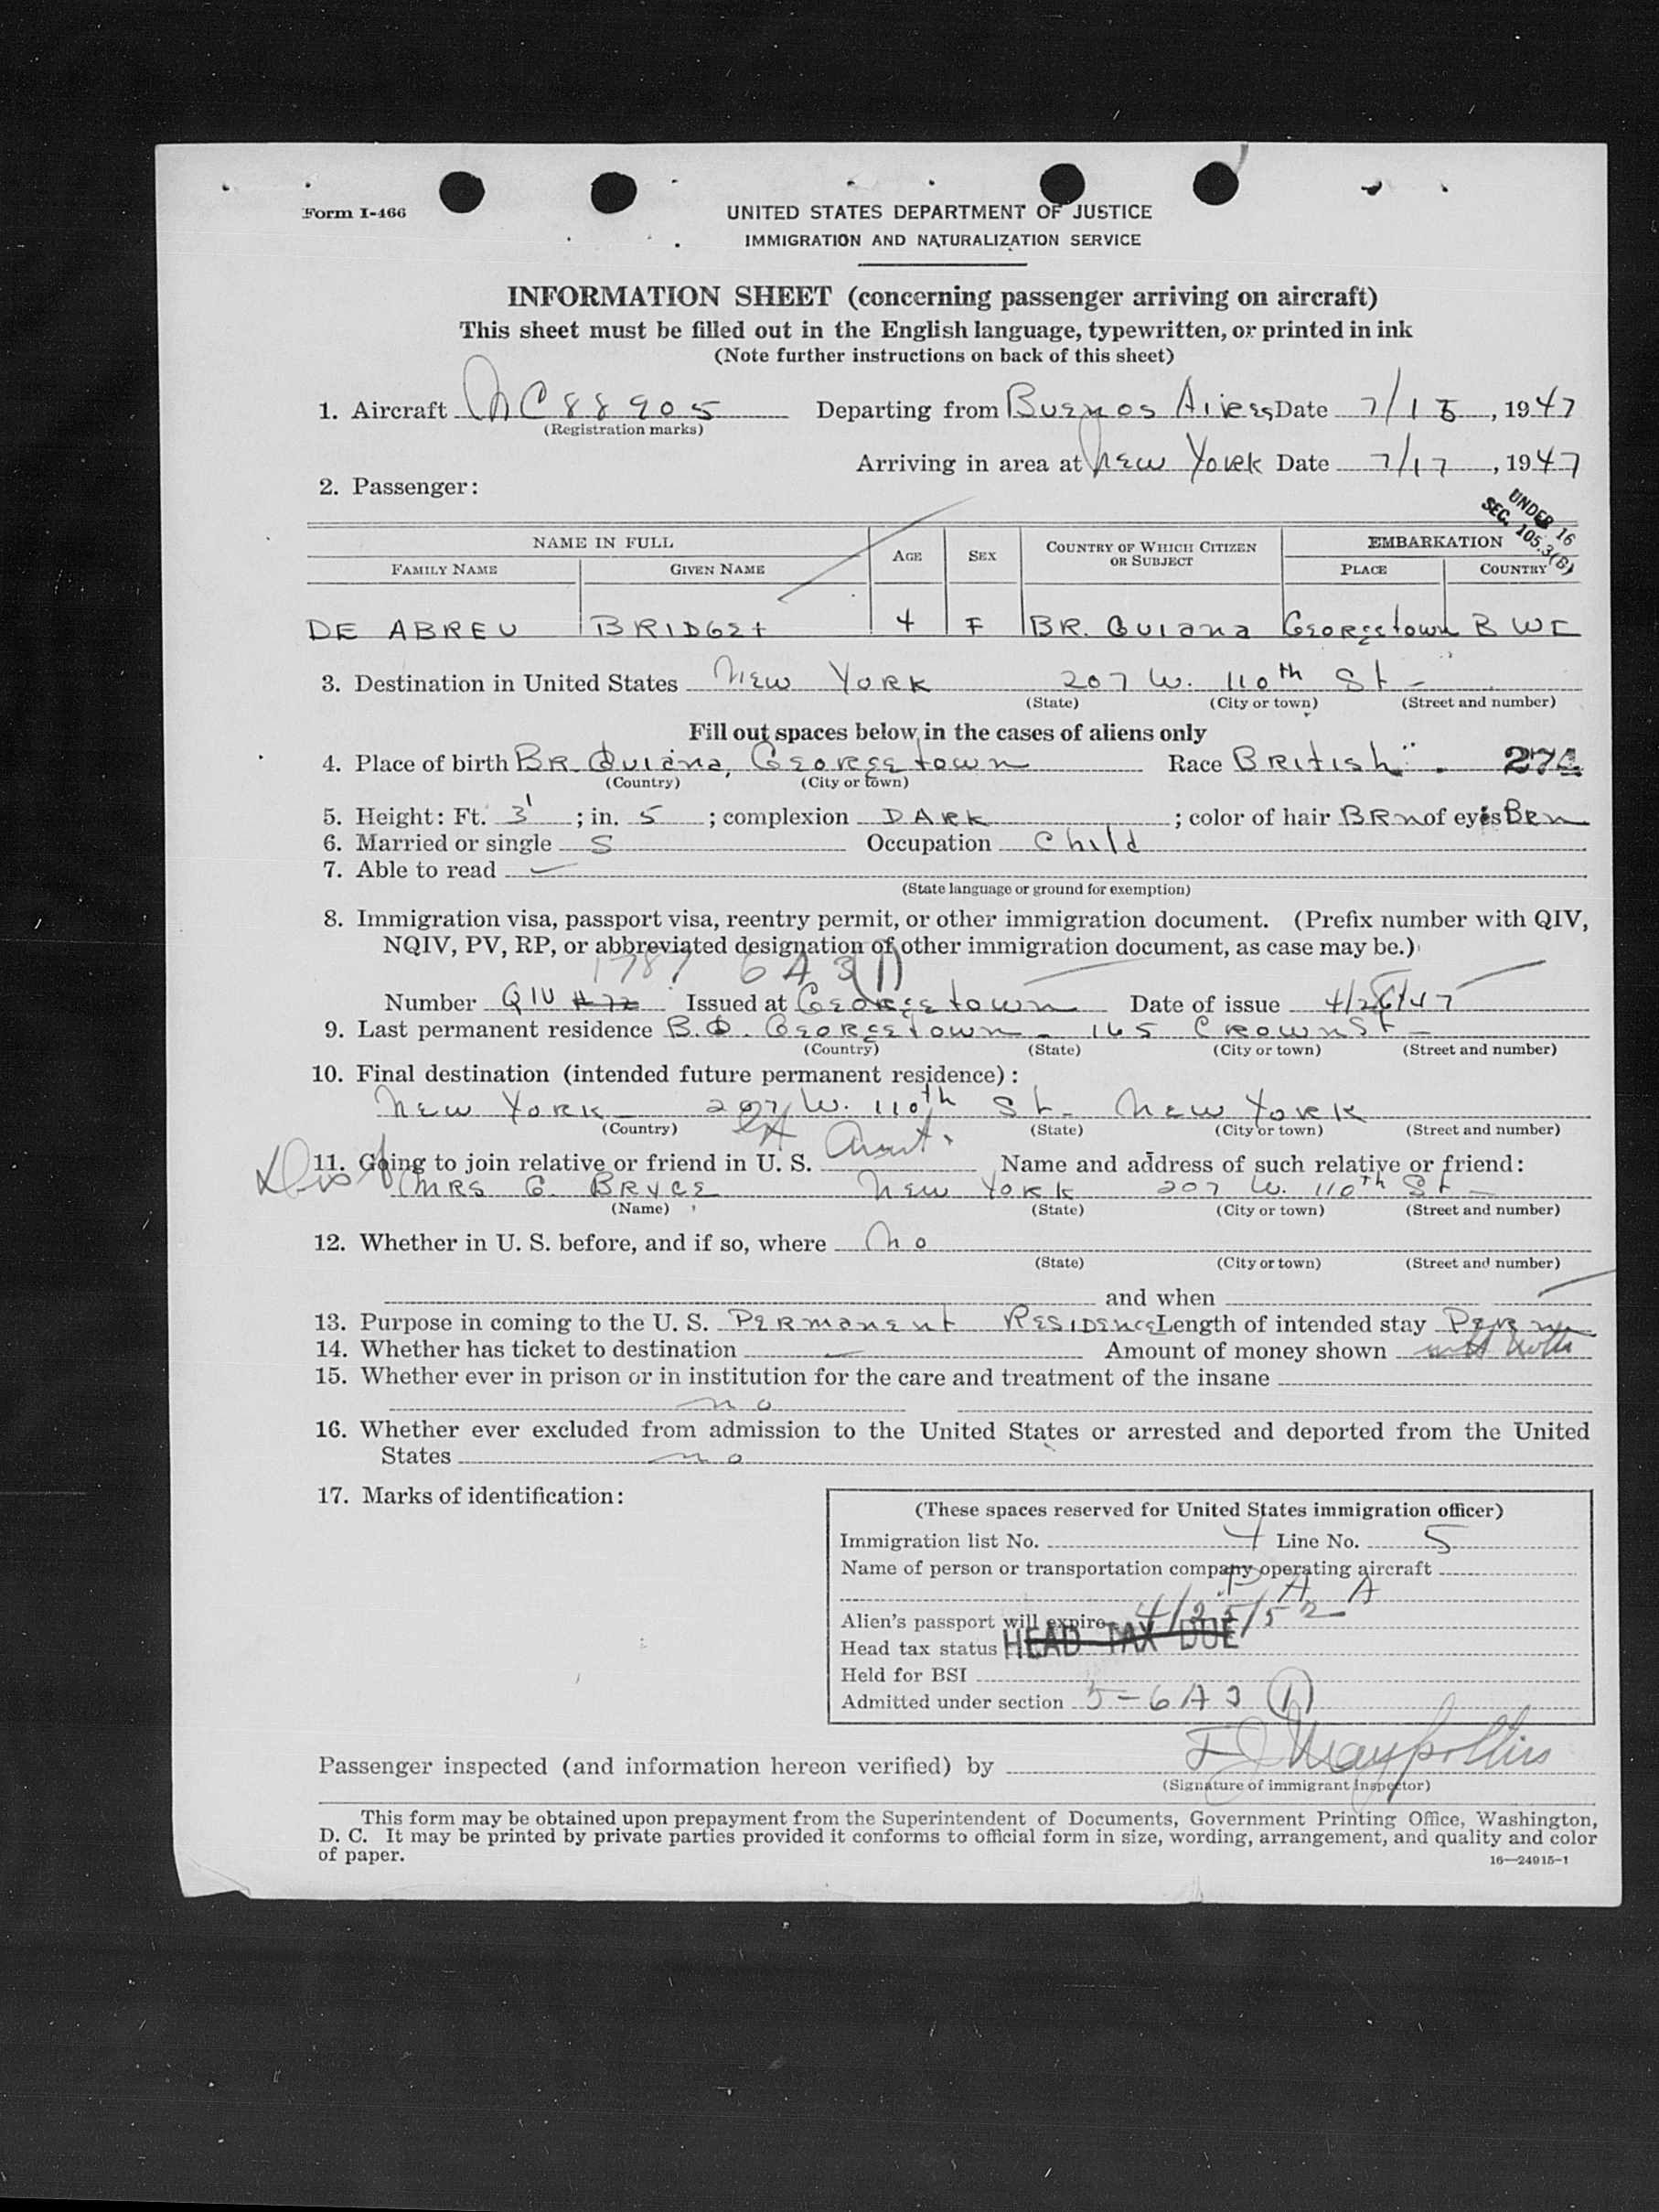 Form I-466
UNITED STATES DEPARTMENT OF JUSTICE
IMMIGRATION AND NATURALIZATION SERVICE
INFORMATION SHEET (concerning passenger arriving on aircraft)
This sheet must be filled out in the English language, typewritten, or printed in ink
(Note further instructions on back of this sheet)
1. Aircraft NC88905 Departing from Buenos Aires Date 7/15, 1947
(Registration marks)
Arriving in area at New York Date 7/17, 1947
2. Passenger:
UNDER 16
SEC. 105.3(B)
NAME IN FULL AGE SEX COUNTRY OF WHICH CITIZEN OR SUBJECT EMBARKATION
FAMILY NAME GIVEN NAME PLACE COUNTRY
DE ABREU BRIDGET 4 F BR. GUIANA GEORGETOWN BWI
3. Destination in United States New York 207 W. 110th St-
(State) (City or town) (Street and number)
Fill out spaces below in the cases of aliens only
4. Place of birth BR. GUIANA, GEORGETOWN Race BRITISH
(Country) (City or town)
5. Height: Ft. 3' ; in. 5 ; complexion DARK ; color of hair BRN of eyes BRN
6. Married or single S Occupation Child
7. Able to read
(State language or ground for exemption)
8. Immigration visa, passport visa, reentry permit, or other immigration document. (Prefix number with QIV,
NQIV, PV, RP, or abbreviated designation of other immigration document, as case may be.)
1787 6A3(1)
Number QIV #72 Issued at Georgetown Date of issue 4/26/47
9. Last permanent residence B.G. Georgetown - 165 Crown St-
(Country) (State) (City or town) (Street and number)
10. Final destination (intended future permanent residence):
New York - 207 W. 110th St- New York
(Country) (State) (City or town) (Street and number)
11. Going to join relative or friend in U. S. Aunt Name and address of such relative or friend:
MRS G. BRYCE New York 207 W. 110th St-
(Name) (State) (City or town) (Street and number)
12. Whether in U. S. before, and if so, where No
(State) (City or town) (Street and number)
and when
13. Purpose in coming to the U. S. PERMANENT RESIDENCE Length of intended stay Perm
14. Whether has ticket to destination Amount of money shown
15. Whether ever in prison or in institution for the care and treatment of the insane
no
16. Whether ever excluded from admission to the United States or arrested and deported from the United
States no
17. Marks of identification:
(These spaces reserved for United States immigration officer)
Immigration list No. 4 Line No. 5
Name of person or transportation company operating aircraft
P A A
Alien's passport will expire 4/25/52
Head tax status HEAD TAX DUE
Held for BSI
Admitted under section 5-6A3 (1)
Passenger inspected (and information hereon verified) by
(Signature of immigrant inspector)
This form may be obtained upon prepayment from the Superintendent of Documents, Government Printing Office, Washington,
D. C. It may be printed by private parties provided it conforms to official form in size, wording, arrangement, and quality and color
of paper.
16—24915-1